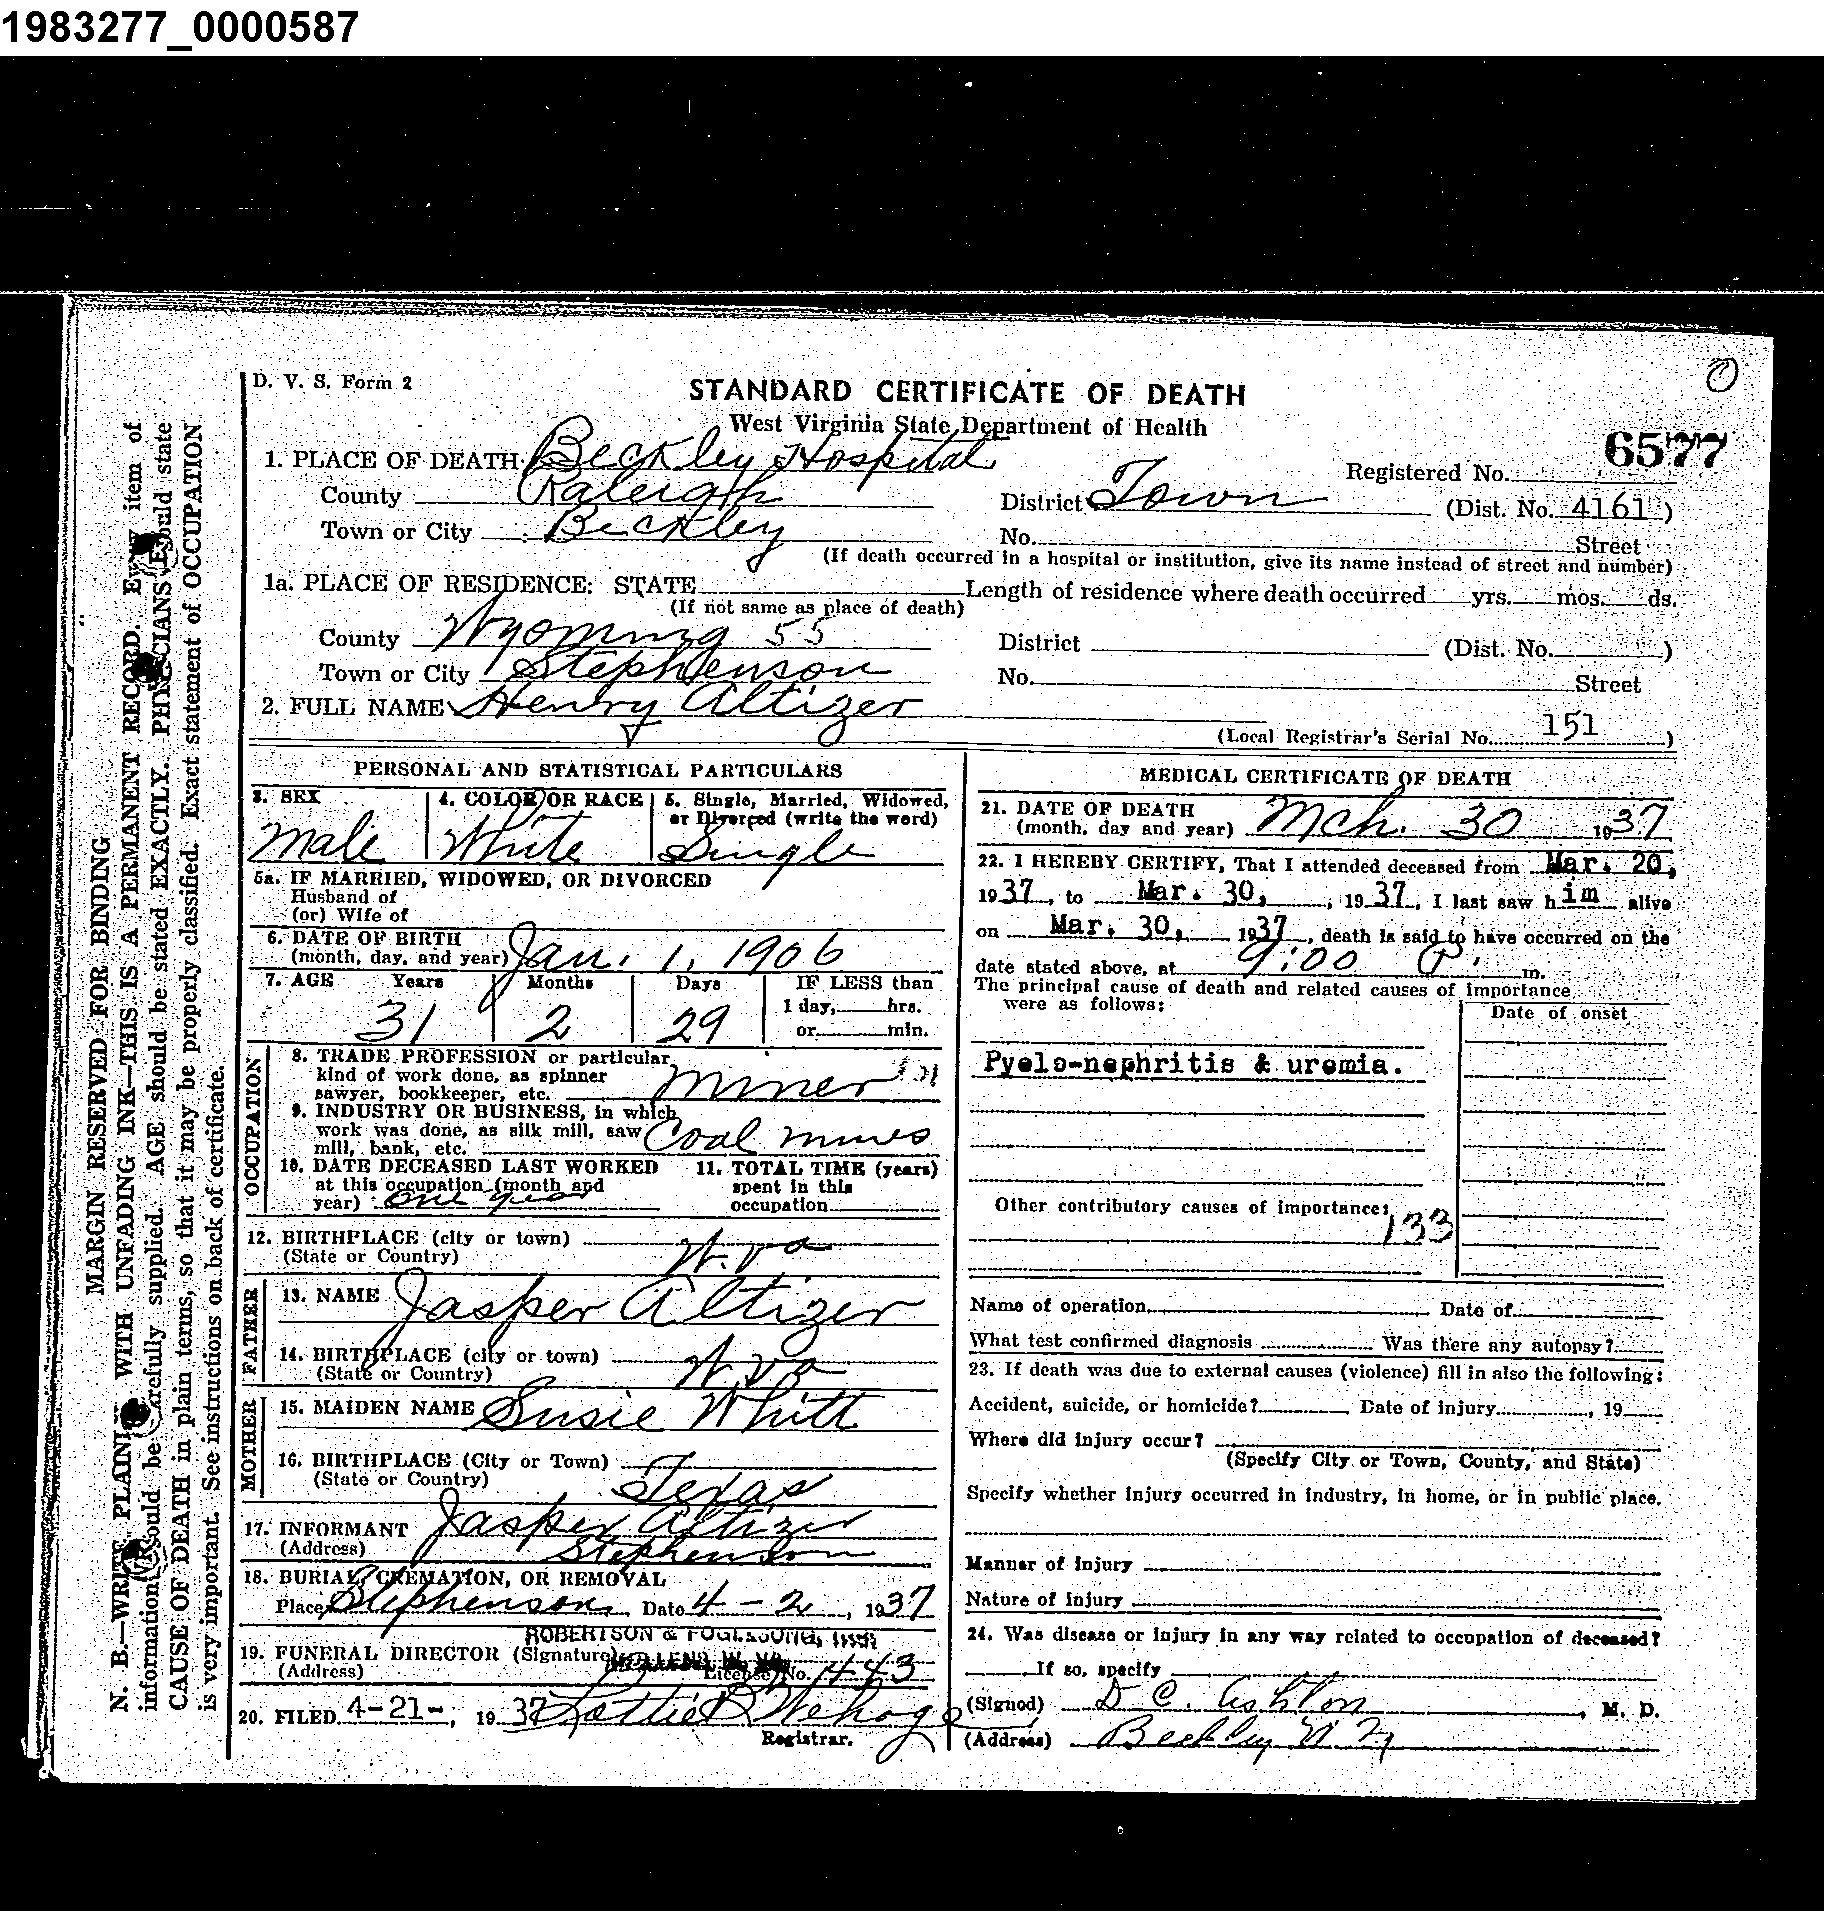 1983277_0000587
D. V. S. Form 2
STANDARD CERTIFICATE OF DEATH
West Virginia State Department of Health
6577
1. PLACE OF DEATH Beckley Hospital
Registered No.
County Raleigh
District Town (Dist. No. 4161)
Town or City Beckley
No. Street
(If death occurred in a hospital or institution, give its name instead of street and number)
1a. PLACE OF RESIDENCE: STATE Length of residence where death occurred yrs. mos. ds.
(If not same as place of death)
County Wyoming 55
District (Dist. No. )
Town or City Stephenson
No. Street
2. FULL NAME Henry Altizer
(Local Registrar's Serial No. 151 )
PERSONAL AND STATISTICAL PARTICULARS
3. SEX
Male
4. COLOR OR RACE
White
5. Single, Married, Widowed,
or Divorced (write the word)
Single
5a. IF MARRIED, WIDOWED, OR DIVORCED
Husband of
(or) Wife of
6. DATE OF BIRTH
(month, day, and year) Jan. 1, 1906
7. AGE Years Months Days IF LESS than
1 day, hrs.
or min.
31 2 29
OCCUPATION
8. TRADE PROFESSION or particular
kind of work done, as spinner
sawyer, bookkeeper, etc. Miner
9. INDUSTRY OR BUSINESS, in which
work was done, as silk mill, saw
mill, bank, etc. Coal mines
10. DATE DECEASED LAST WORKED
at this occupation (month and
year) one year
11. TOTAL TIME (years)
spent in this
occupation
12. BIRTHPLACE (city or town)
(State or Country) W. Va
FATHER
13. NAME Jasper Altizer
14. BIRTHPLACE (city or town)
(State or Country) W Va
MOTHER
15. MAIDEN NAME Susie Whitt
16. BIRTHPLACE (City or Town)
(State or Country) Texas
17. INFORMANT Jasper Altizer
(Address) Stephenson
18. BURIAL, CREMATION, OR REMOVAL
Place Stephenson Date 4-2, 1937
ROBERTSON & FOGLESONG, INC.
19. FUNERAL DIRECTOR (Signature)
(Address) License No. 1443
20. FILED 4-21-, 1937 Lottie R Wehage
Registrar.
MEDICAL CERTIFICATE OF DEATH
21. DATE OF DEATH
(month, day and year) Mch. 30 1937
22. I HEREBY CERTIFY, That I attended deceased from Mar. 20,
1937, to Mar. 30, , 1937, I last saw him alive
on Mar. 30, 1937, death is said to have occurred on the
date stated above, at 9:00 P. m.
The principal cause of death and related causes of importance
were as follows:
Date of onset
Pyelo-nephritis & uremia.
Other contributory causes of importance:
133
Name of operation Date of
What test confirmed diagnosis Was there any autopsy?
23. If death was due to external causes (violence) fill in also the following:
Accident, suicide, or homicide? Date of injury , 19
Where did injury occur?
(Specify City or Town, County, and State)
Specify whether injury occurred in industry, in home, or in public place.
Manner of injury
Nature of injury
24. Was disease or injury in any way related to occupation of deceased?
If so, specify
(Signed) D C. Ashton , M. D.
(Address) Beckley W. Va
MARGIN RESERVED FOR BINDING
N. B.—WRITE PLAINLY WITH UNFADING INK—THIS IS A PERMANENT RECORD. Every item of
information should be carefully supplied. AGE should be stated EXACTLY. PHYSICIANS should state
CAUSE OF DEATH in plain terms, so that it may be properly classified. Exact statement of OCCUPATION
is very important. See instructions on back of certificate.